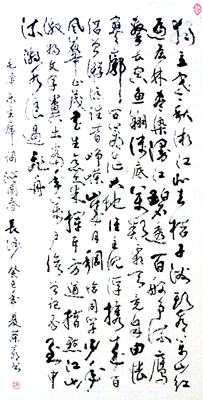 独立寒秋湘江北去橘子洲头看万山红
遍层林尽染漫江碧透百舸争流鹰
击长空鱼翔浅底万类霜天竞自由怅
寥廓问苍茫大地谁主沉浮携来百
侣曾游忆往昔峥嵘岁月稠恰同学少年
风华正茂书生意气挥斥方遒指点江山
激扬文字粪土当年万户侯曾记否到中
流击水浪遏飞舟
毛泽东主席词沁园春长沙癸巳